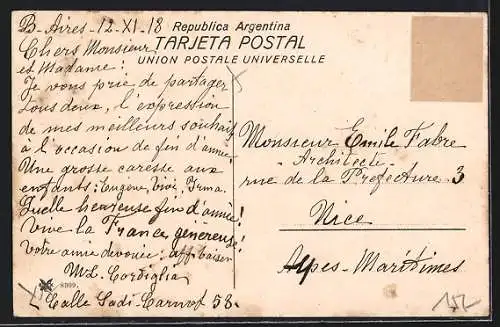 B-Aires-12-XI-18
Republica Argentina
TARJETA POSTAL
UNION POSTALE UNIVERSELLE
Chers Monsieur
et Madame!
Je vous prie de partager
tous deux, l'expression
de mes meilleurs souhaits
à l'occasion de fin d'année.
Une grosse caresse aux
enfants: Eugène, Irma.
Quelle heureuse fin d'année!
Vive la France, genereuse!
Votre amie devouée: aff. baiser
M.L. Cordiglia
Calle Sadi-Carnot 53.
8309
Monsieur Emile Fabre
Architecte
rue de la Prefecture 3
Nice
Alpes-Maritimes